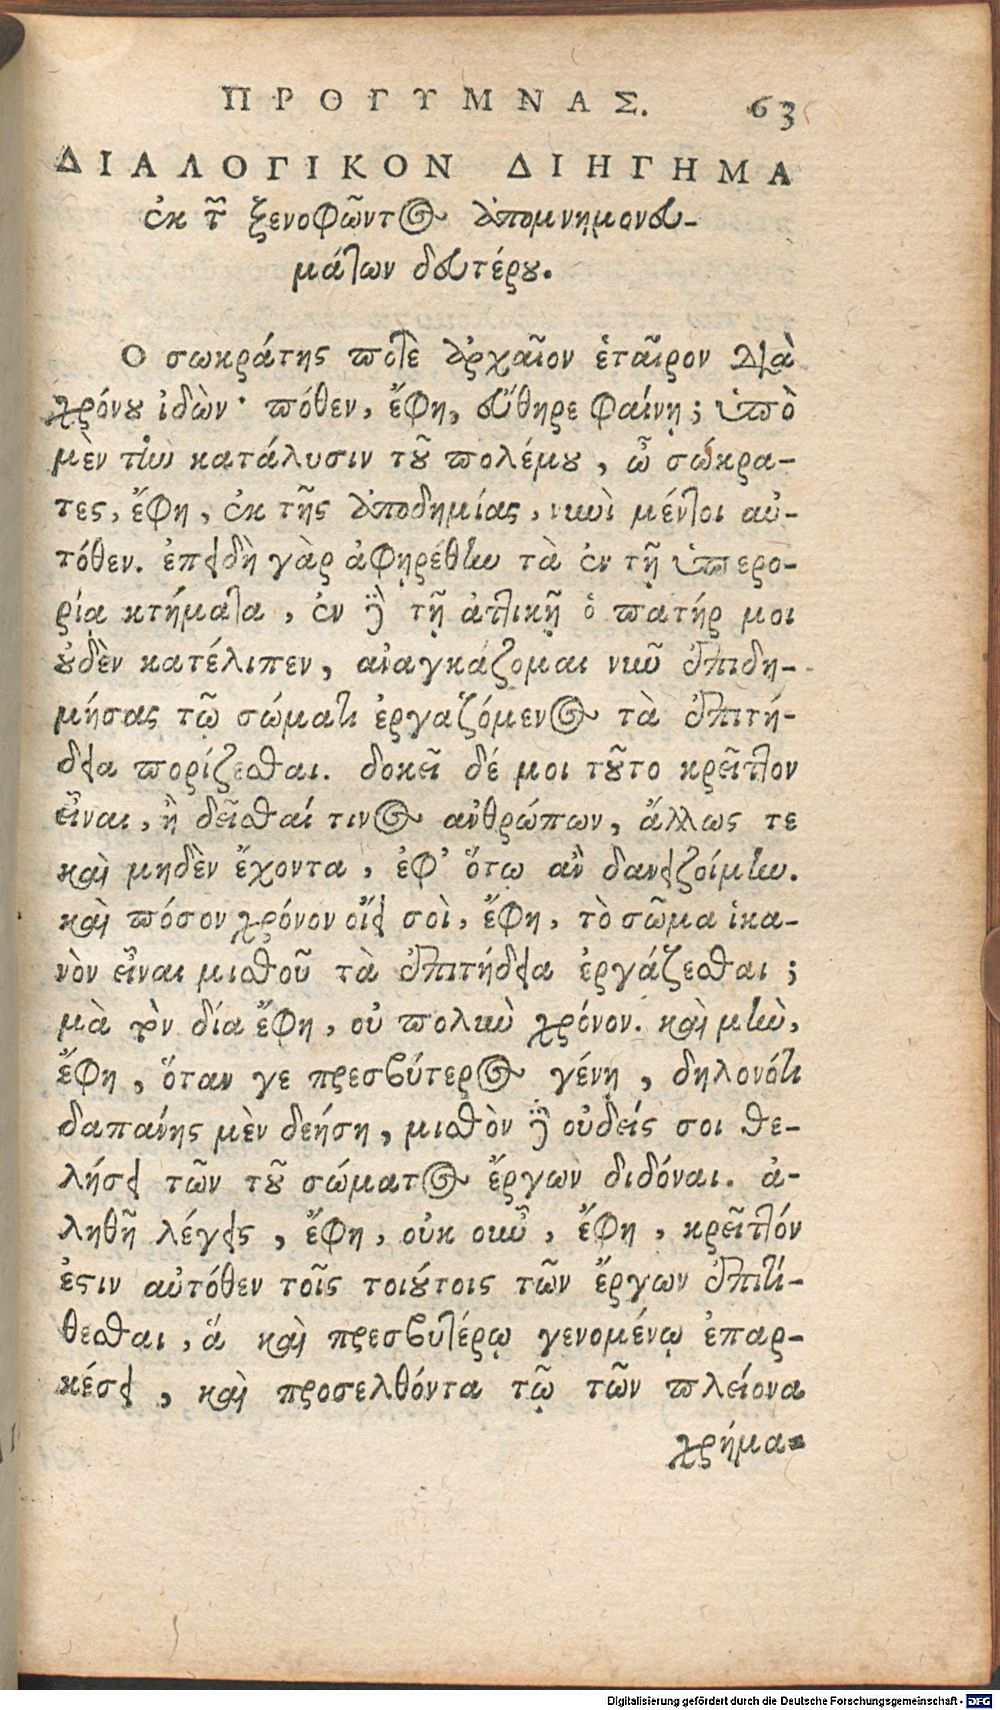 ΠΡΟΓΥΜΝΑΣ. 63
ΔΙΑΛΟΓΙΚΟΝ ΔΙΗΓΗΜΑ
ἐκ τῶν ξενοφῶντος ἀπομνημονευ-
μάτων δευτέρου.
Ο σωκράτης ποτε ἀρχαῖον ἑταῖρον διὰ
χρόνου ἰδὼν· πόθεν, ἔφη, εὔθηρε φαίνῃ; ὑπὸ
μὲν τὴν κατάλυσιν τοῦ πολέμου, ὦ σώκρα-
τες, ἔφη, ἐκ τῆς ἀποδημίας, νυνὶ μέντοι αὐ-
τόθεν. ἐπειδὴ γὰρ ἀφῃρέθην τὰ ἐν τῇ ὑπερο-
ρίᾳ κτήματα, ἐν δὲ τῇ ἀττικῇ ὁ πατήρ μοι
οὐδὲν κατέλιπεν, ἀναγκάζομαι νῦν ἐπιδη-
μήσας τῷ σώματι ἐργαζόμενος τὰ ἐπιτή-
δεια πορίζεσθαι. δοκεῖ δέ μοι τοῦτο κρεῖττον
εἶναι, ἢ δεῖσθαί τινος ἀνθρώπων, ἄλλως τε
καὶ μηδὲν ἔχοντα, ἐφ’ ὅτῳ ἂν δανειζοίμην.
καὶ πόσον χρόνον οἴει σοὶ, ἔφη, τὸ σῶμα ἱκα-
νὸν εἶναι μισθοῦ τὰ ἐπιτήδεια ἐργάζεσθαι;
μὰ τὸν δία ἔφη, οὐ πολὺν χρόνον. καὶ μὴν,
ἔφη, ὅταν γε πρεσβύτερος γένῃ, δηλονότι
δαπάνης μὲν δεήσῃ, μισθὸν δὲ οὐδείς σοι θε-
λήσει τῶν τοῦ σώματος ἔργων διδόναι. ἀ-
ληθῆ λέγεις, ἔφη, οὐκ οῦν, ἔφη, κρεῖττόν
ἐστιν αὐτόθεν τοῖς τοιούτοις τῶν ἔργων ἐπιτί-
θεσθαι, ἅ καὶ πρεσβυτέρῳ γενομένῳ ἐπαρ-
κέσει, καὶ προσελθόντα τῷ τῶν πλείονα
χρήμα-
Digitalisierung gefördert durch die Deutsche Forschungsgemeinschaft - DFG